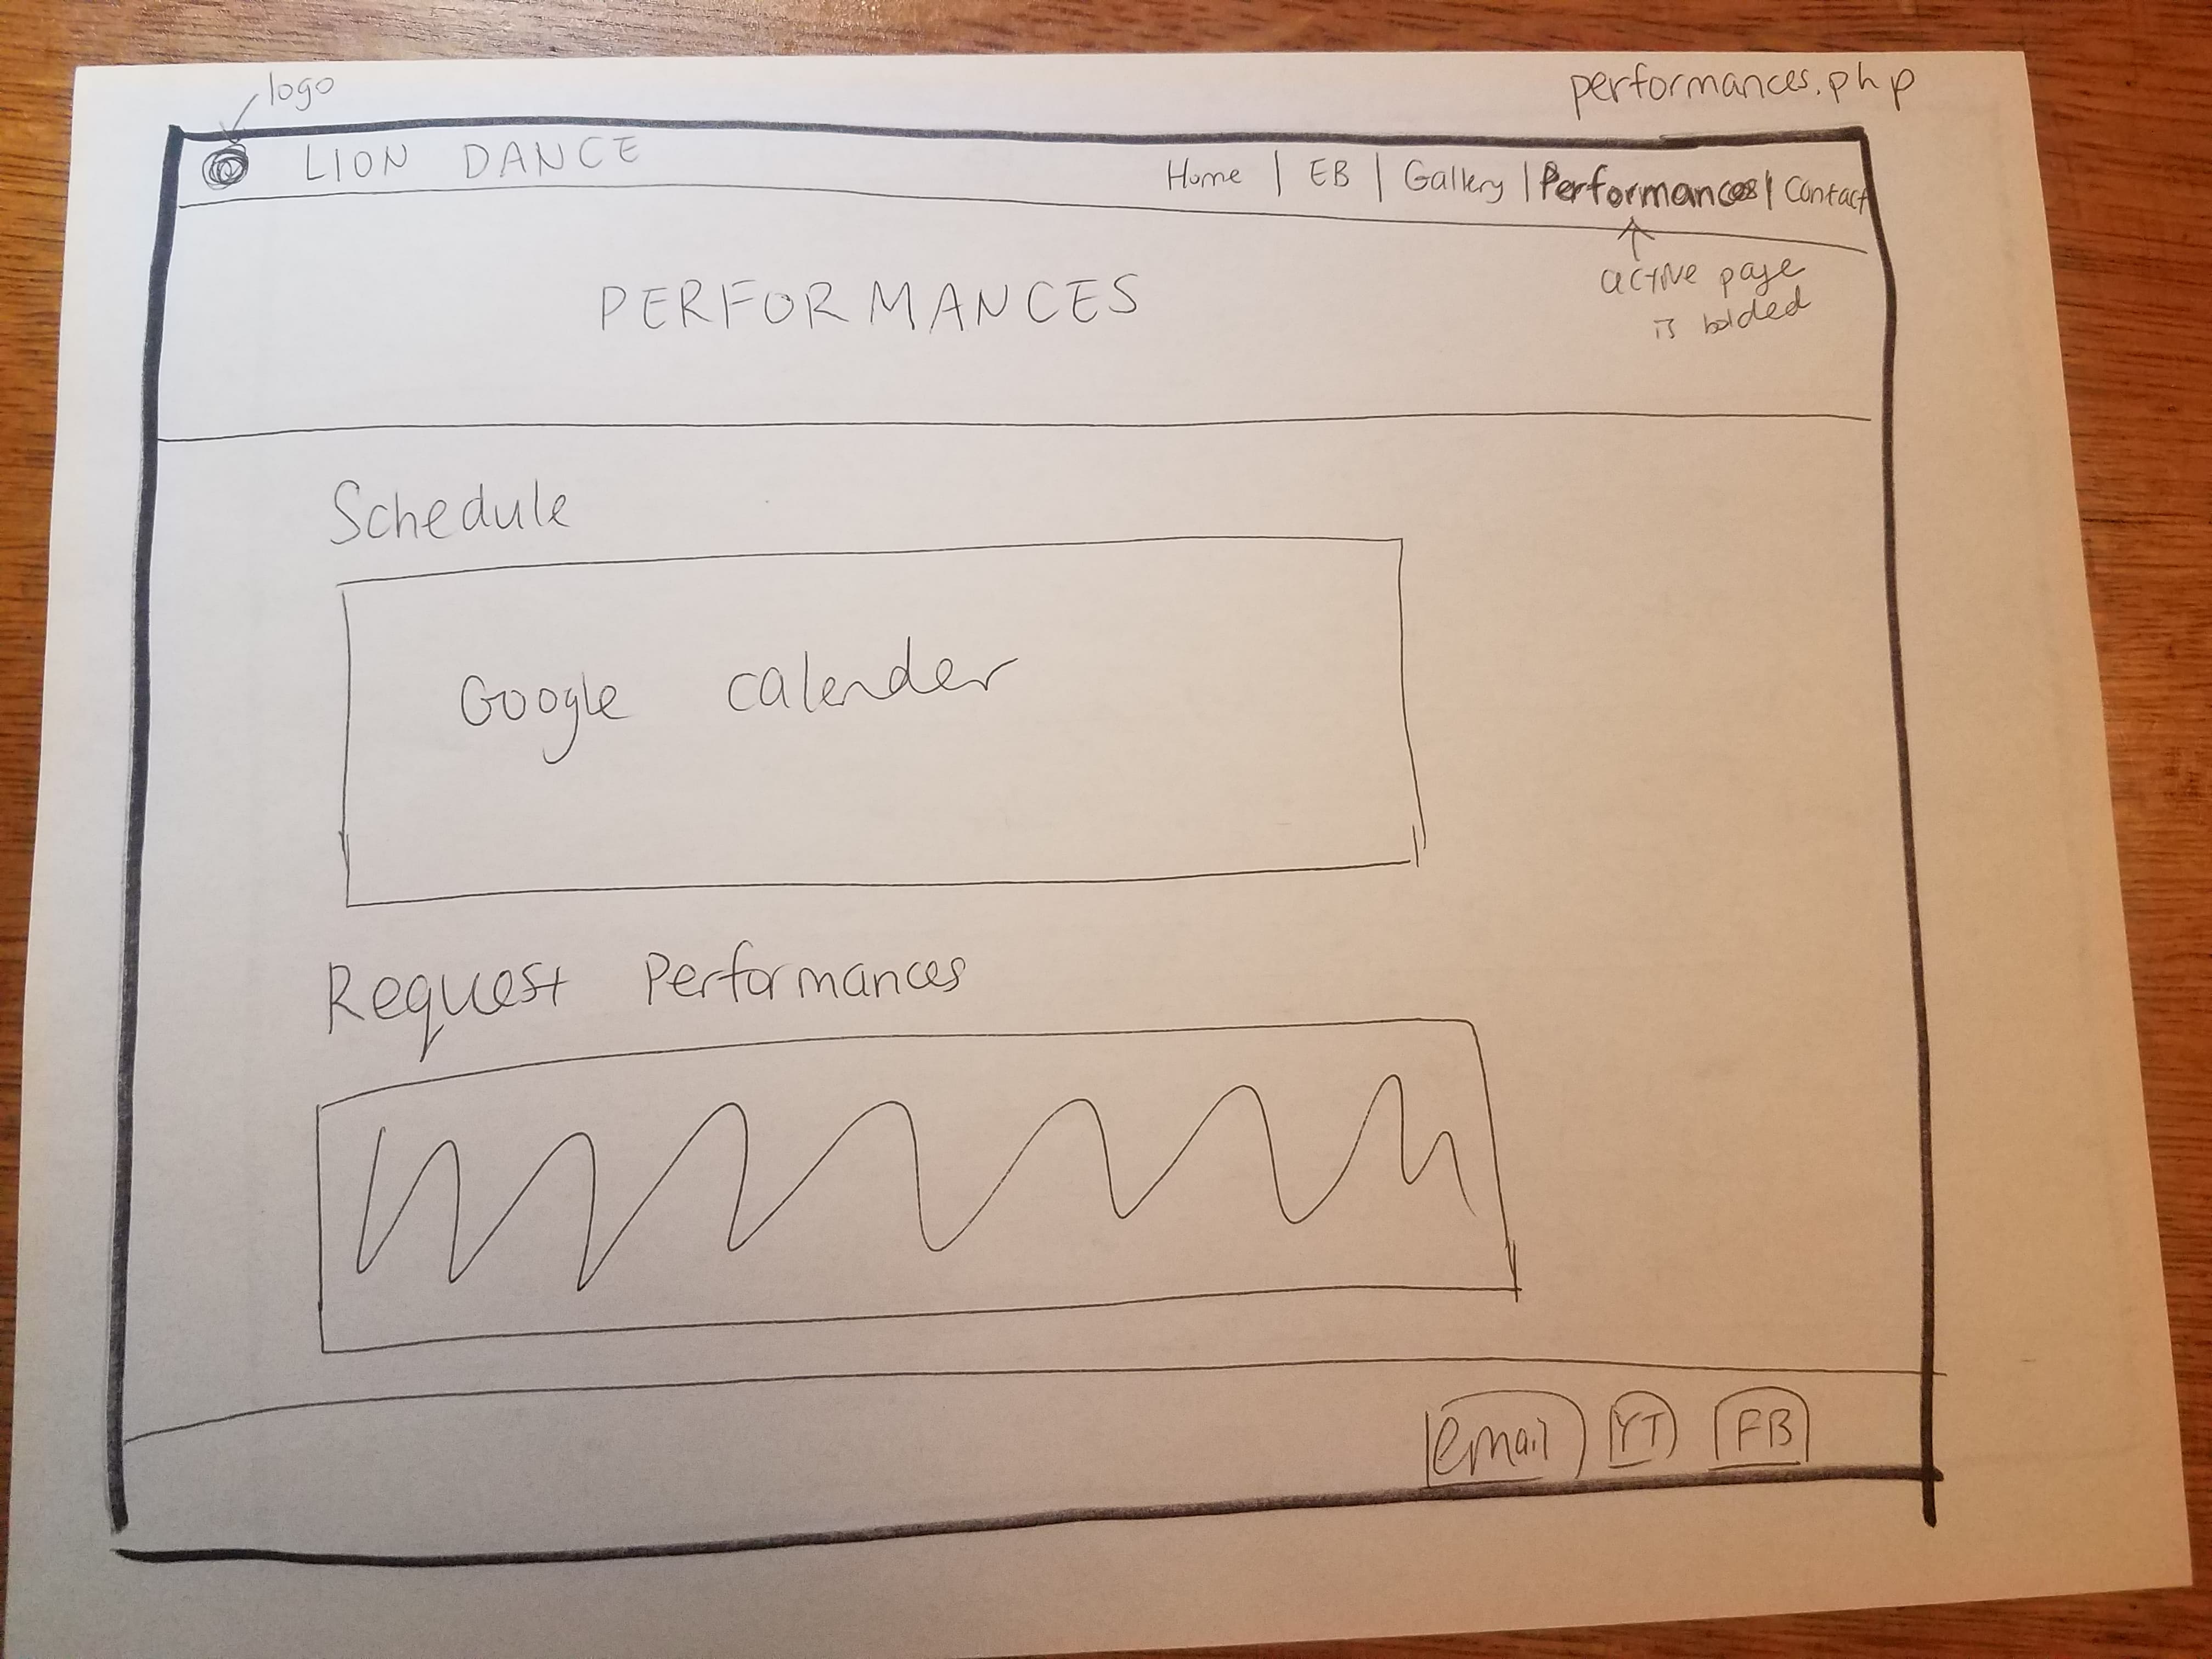 logo
performances.php
LION DANCE
Home | EB | Gallery | Performances | Contact
active page
is bolded
PERFORMANCES
Schedule
Google calender
Request Performances
email YT FB